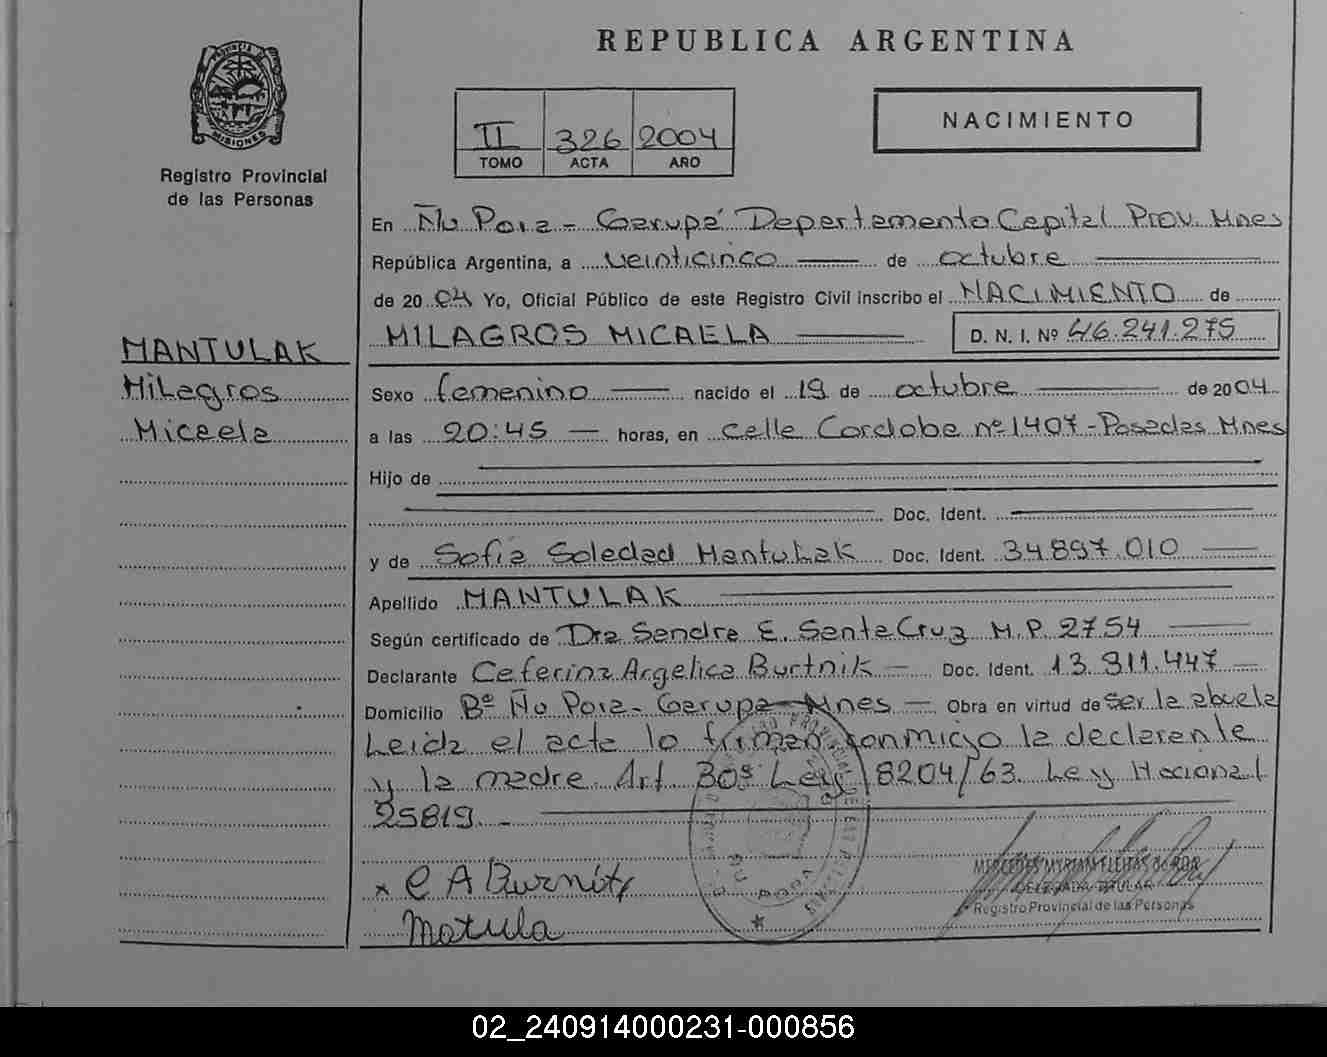 REPUBLICA ARGENTINA
PROVINCIA DE
MISIONES
Registro Provincial
de las Personas
II 326 2004
TOMO ACTA AÑO
NACIMIENTO
En Ñu Pora - Garupá Departamento Capital Prov. Mnes
República Argentina, a veinticinco de octubre
de 2004 Yo, Oficial Público de este Registro Civil inscribo el NACIMIENTO de
MILAGROS MICAELA D. N. I. Nº 46.241.275
MANTULAK
Milagros
Micaela
Sexo femenino nacido el 19 de octubre de 2004
a las 20:45 horas, en calle Cordoba nº 1407 - Posadas Mnes
Hijo de
Doc. Ident.
y de Sofia Soledad Mantulak Doc. Ident. 34.897.010
Apellido MANTULAK
Según certificado de Dra Sandra E. Santa Cruz M.P. 2754
Declarante Ceferina Argelica Burtnik - Doc. Ident. 13.911.447
Domicilio Bº Ñu Pora - Garupa - Mnes - Obra en virtud de ser la abuela
Leida el acta lo firman conmigo la declarante
y la madre. Art 30º Ley 8204/63. Ley Nacional
25819. -
x C A Burnit
Matula
MERCEDES MYRIAM FLEITAS de ROA
DELEGADA TITULAR
Registro Provincial de las Personas
02_240914000231-000856